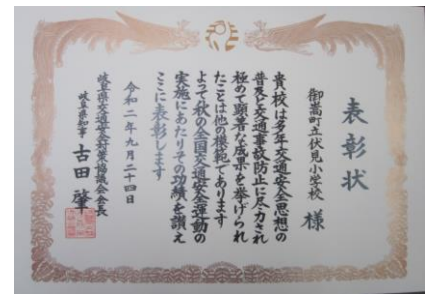 表彰状
御嵩町立伏見小学校 様
貴校は多年交通安全思想の
普及と交通事故防止に尽力され
極めて顕著な成果を挙げられ
たことは他の模範であります
よって秋の全国交通安全運動の
実施にあたりその功績を讃え
ここに表彰します
令和二年九月二十四日
岐阜県交通安全対策協議会会長
岐阜県知事 古田 肇